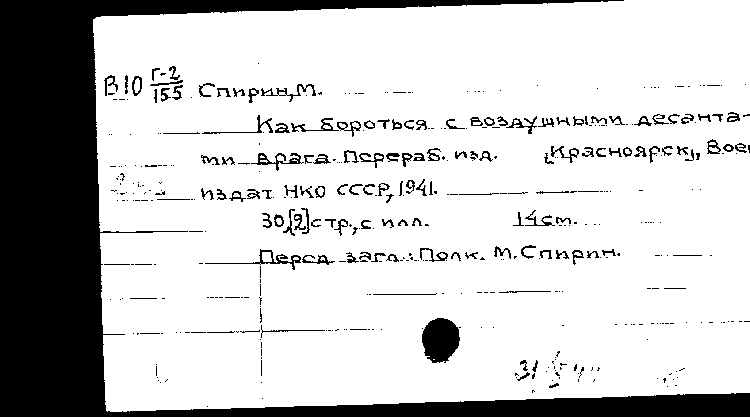 В10 Г-2/155 Спирин, М.
Как бороться с воздушными десанта-
ми врага. Перераб. изд. [Красноярск], Воен
издат НКО СССР, 1941.
30,[2]стр., с илл. 14см.
Перед загл.: Полк. М. Спирин.